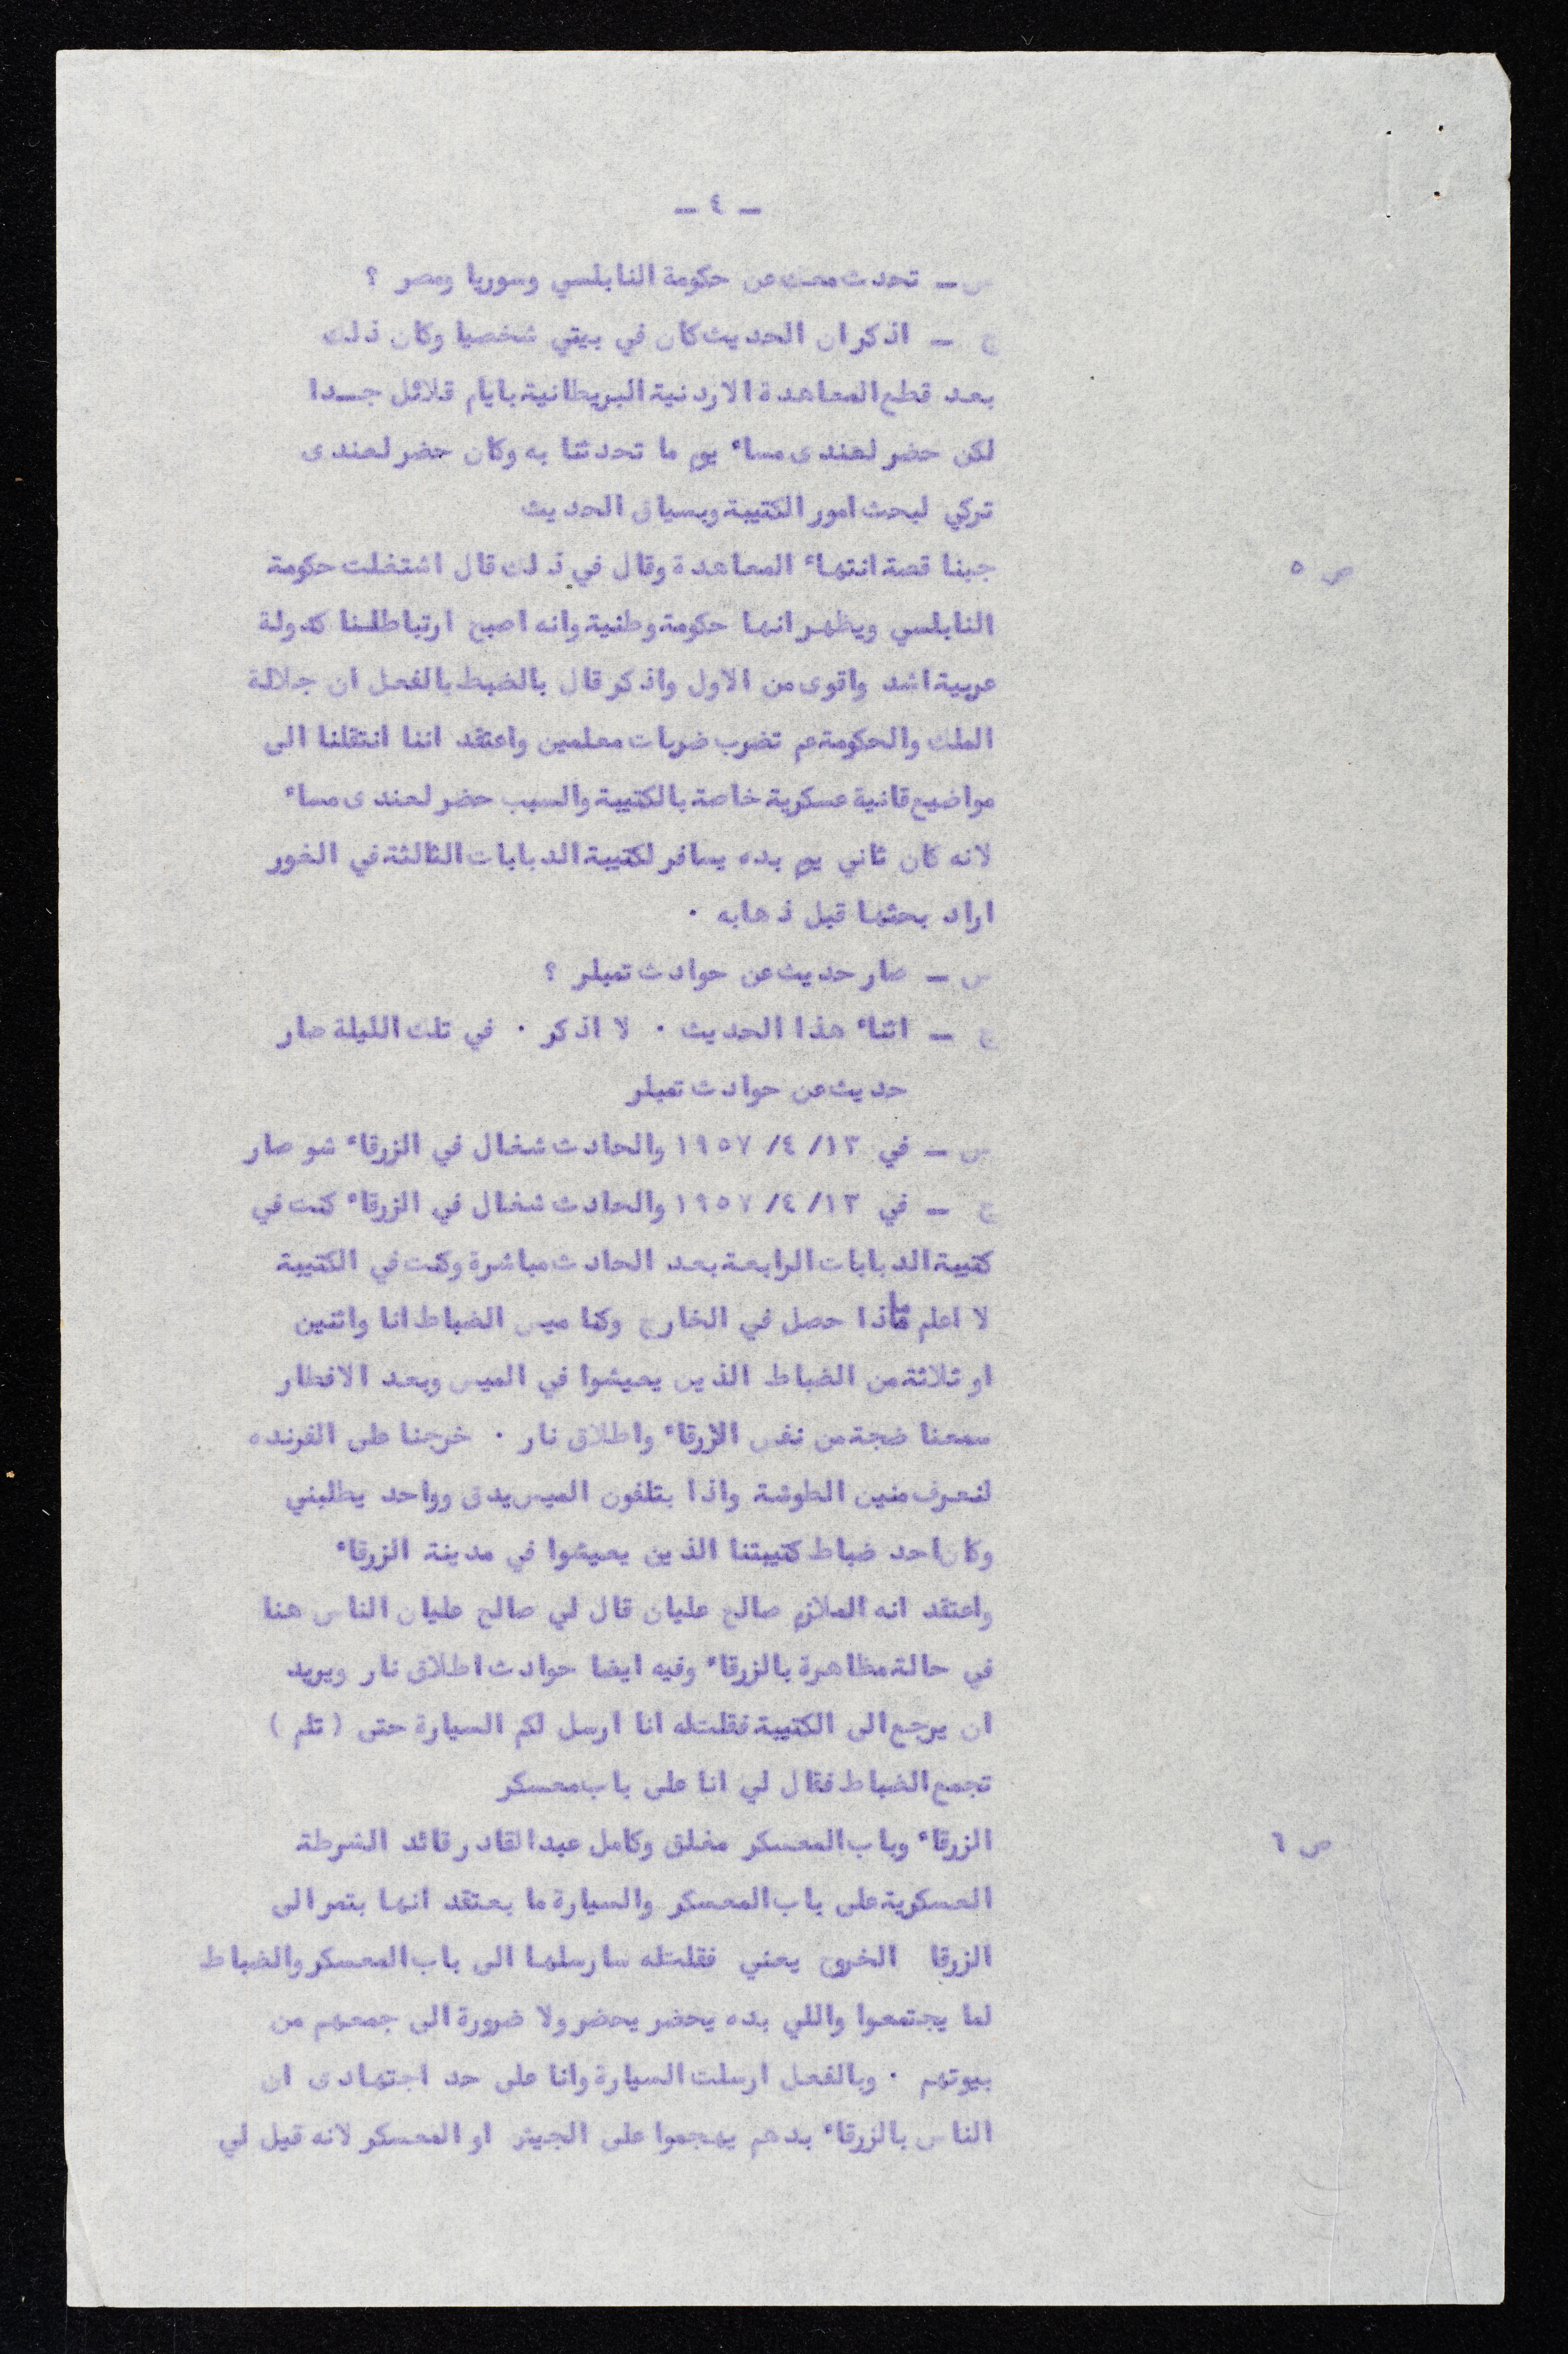 - ٤ -
س - تحدث معك عن حكومة النابلسي وسوريا ومصر ؟
ج - اذكر ان الحديث كان في بيتي شخصيا وكان ذلك
بعد قطع المعاهدة الاردنية البريطانية بايام قلائل جـدا
لكن حضر لعندى مساء يوم ما تحدثنا به وكان حضر لعندى
تركي لبحث امور الكتيبة وبسياق الحديث
ص ٥ جبنا قصة انتهاء المعاهدة وقال في ذلك قال اشتغلت حكومة
النابلسي ويظهر انها حكومة وطنية وانه اصبح ارتباطلنا كدولة
عربية اشد واقوى من الاول واذكر قال بالضبط بالفعل ان جلالة
الملك والحكومة عم تضرب ضربات معلمين واعتقد اننا انتقلنا الى
مواضيع قانية عسكرية خاصة بالكتيبة والسبب حضر لعندى مساء
لانه كان ثاني يوم بده يسافر لكتيبة الدبابات الثالثة في الغور
اراد بحثها قبل ذهابه .
س - صار حديث عن حوادث تمبلر ؟
ج - اثناء هذا الحديث . لا اذكر . في تلك الليلة صار
حديث عن حوادث تمبلر
س - في ١٣/ ٤/ ١٩٥٧ والحادث شغال في الزرقاء شو صار
ج - في ١٣/ ٤/ ١٩٥٧ والحادث شغال في الزرقاء كنت في
كتيبة الدبابات الرابعة بعد الحادث مباشرة وكنت في الكتيبة
لا اعلم ماذا حصل في الخارج وكنا ميس الضباط انا واثنين
او ثلاثة من الضباط الذين يعيشوا في الميس وبعد الافطار
سمعنا ضجة من نفس الزرقاء واطلاق نار . خرجنا على الفرنده
لنعرف منين الطوشة واذا بتلفون الميس يدق وواحد يطلبني
وكان احد ضباط كتيبتنا الذين يعيشوا في مدينة الزرقاء
واعتقد انه الملازم صالح عليان قال لي صالح عليان الناس هنا
في حالة مظاهرة بالزرقاء وفيه ايضا حوادث اطلاق نار ويريد
ان يرجع الى الكتيبة فقلتله انا ارسل لكم السيارة حتى ( تلم )
تجمع الضباط فقال لي انا على باب معسكر
ص ٦ الزرقاء وباب المعسكر مغلق وكامل عبد القادر قائد الشرطة
العسكرية على باب المعسكر والسيارة ما بعتقد انها بتمر الى
الزرقا الخروج يعني فقلتله سارسلها الى باب المعسكر والضباط
لما يجتمعوا واللي بده يحضر يحضر ولا ضرورة الى جمعهم من
بيوتهم . وبالفعل ارسلت السيارة وانا على حد اجتهادى ان
الناس بالزرقاء بدهم يهجموا على الجيش او المعسكر لانه قيل لي